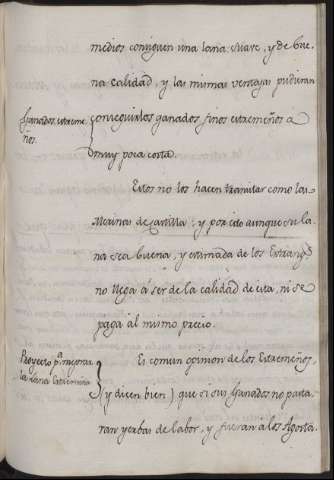 medios consiguen una lana suave, y de bue-
na calidad, y las mismas ventajas pudieran
Ganados estreme-
ños.
conseguir los ganados finos estremeños a
muy poca costa.
Estos no los hacen transitar como las
Merinas de Castilla: y por esto aunque su la-
na sea buena, y estimada de los Estrangs
no llega á ser de la calidad de esta, ni se
paga al mismo precio.
Proyecto pa mejorar
la lana Estremeña
Es comun opinion de los Estremeños,
(y dicen bien) que si sus Ganados no pasta-
ran yerbas de labor, y fueran a los Agosta-